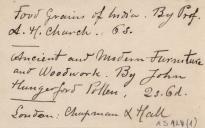 Food Grains of India. By Prof.
A. H. Church. 6s.
Ancient and Modern Furniture
and Woodwork. By John
Hungerford Pollen, 2s.6d.
London: Chapman & Hall